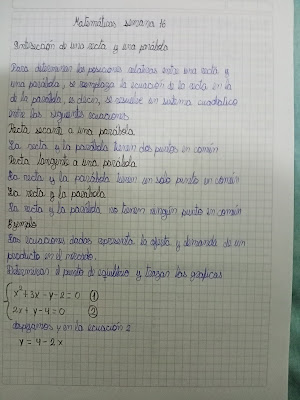 Matemáticas semana 16
Intersección de una recta y una parábola
Para determinar las posiciones relativas entre una recta y
una parábola, se remplaza la ecuación de la recta en la
de la parábola, es decir, se resuelve un sistema cuadratico
entre las siguientes ecuaciones.
Recta secante a una parábola
La recta y la parábola tienen dos puntos en común
Recta tangente a una parábola
La recta y la parábola tienen un solo punto en común
La recta y la parábola
La recta y la parábola no tienen ningún punto en común
Ejemplo
Las ecuaciones dadas representa la oferta y demanda de un
producto en el mercado.
Determinar el punto de equilibrio y trazar las graficas
x² + 3x - y - 2 = 0 ①
2x + y - 4 = 0 ②
despejamos y en la ecuación 2
y = 4 - 2x